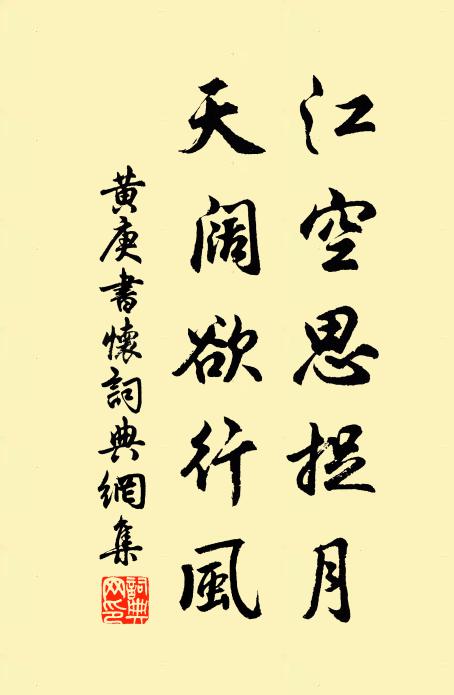 江空思捉月
天闊欲行風
黄庚書懷詞典網集
詞典网印